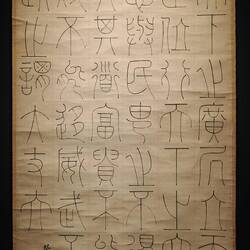 天下之廣居立天
正位行天下之大
志與民由之不得
行其道富貴不能
賤不能移威武不
此之謂大丈夫